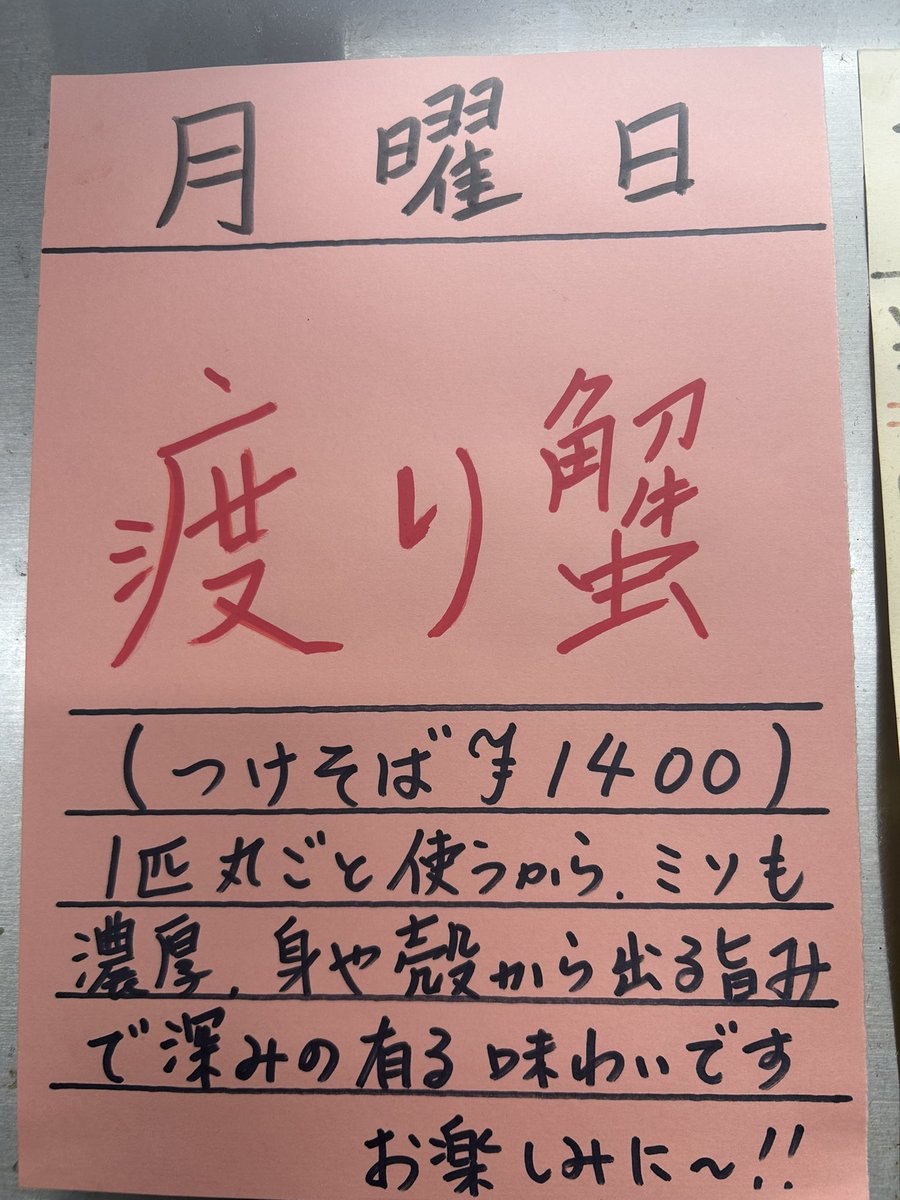 月曜日
渡り蟹
(つけそば¥1400)
1匹丸ごと使うから、ミソも
濃厚、身や殻から出る旨み
で深みの有る味わいです
お楽しみに〜!!